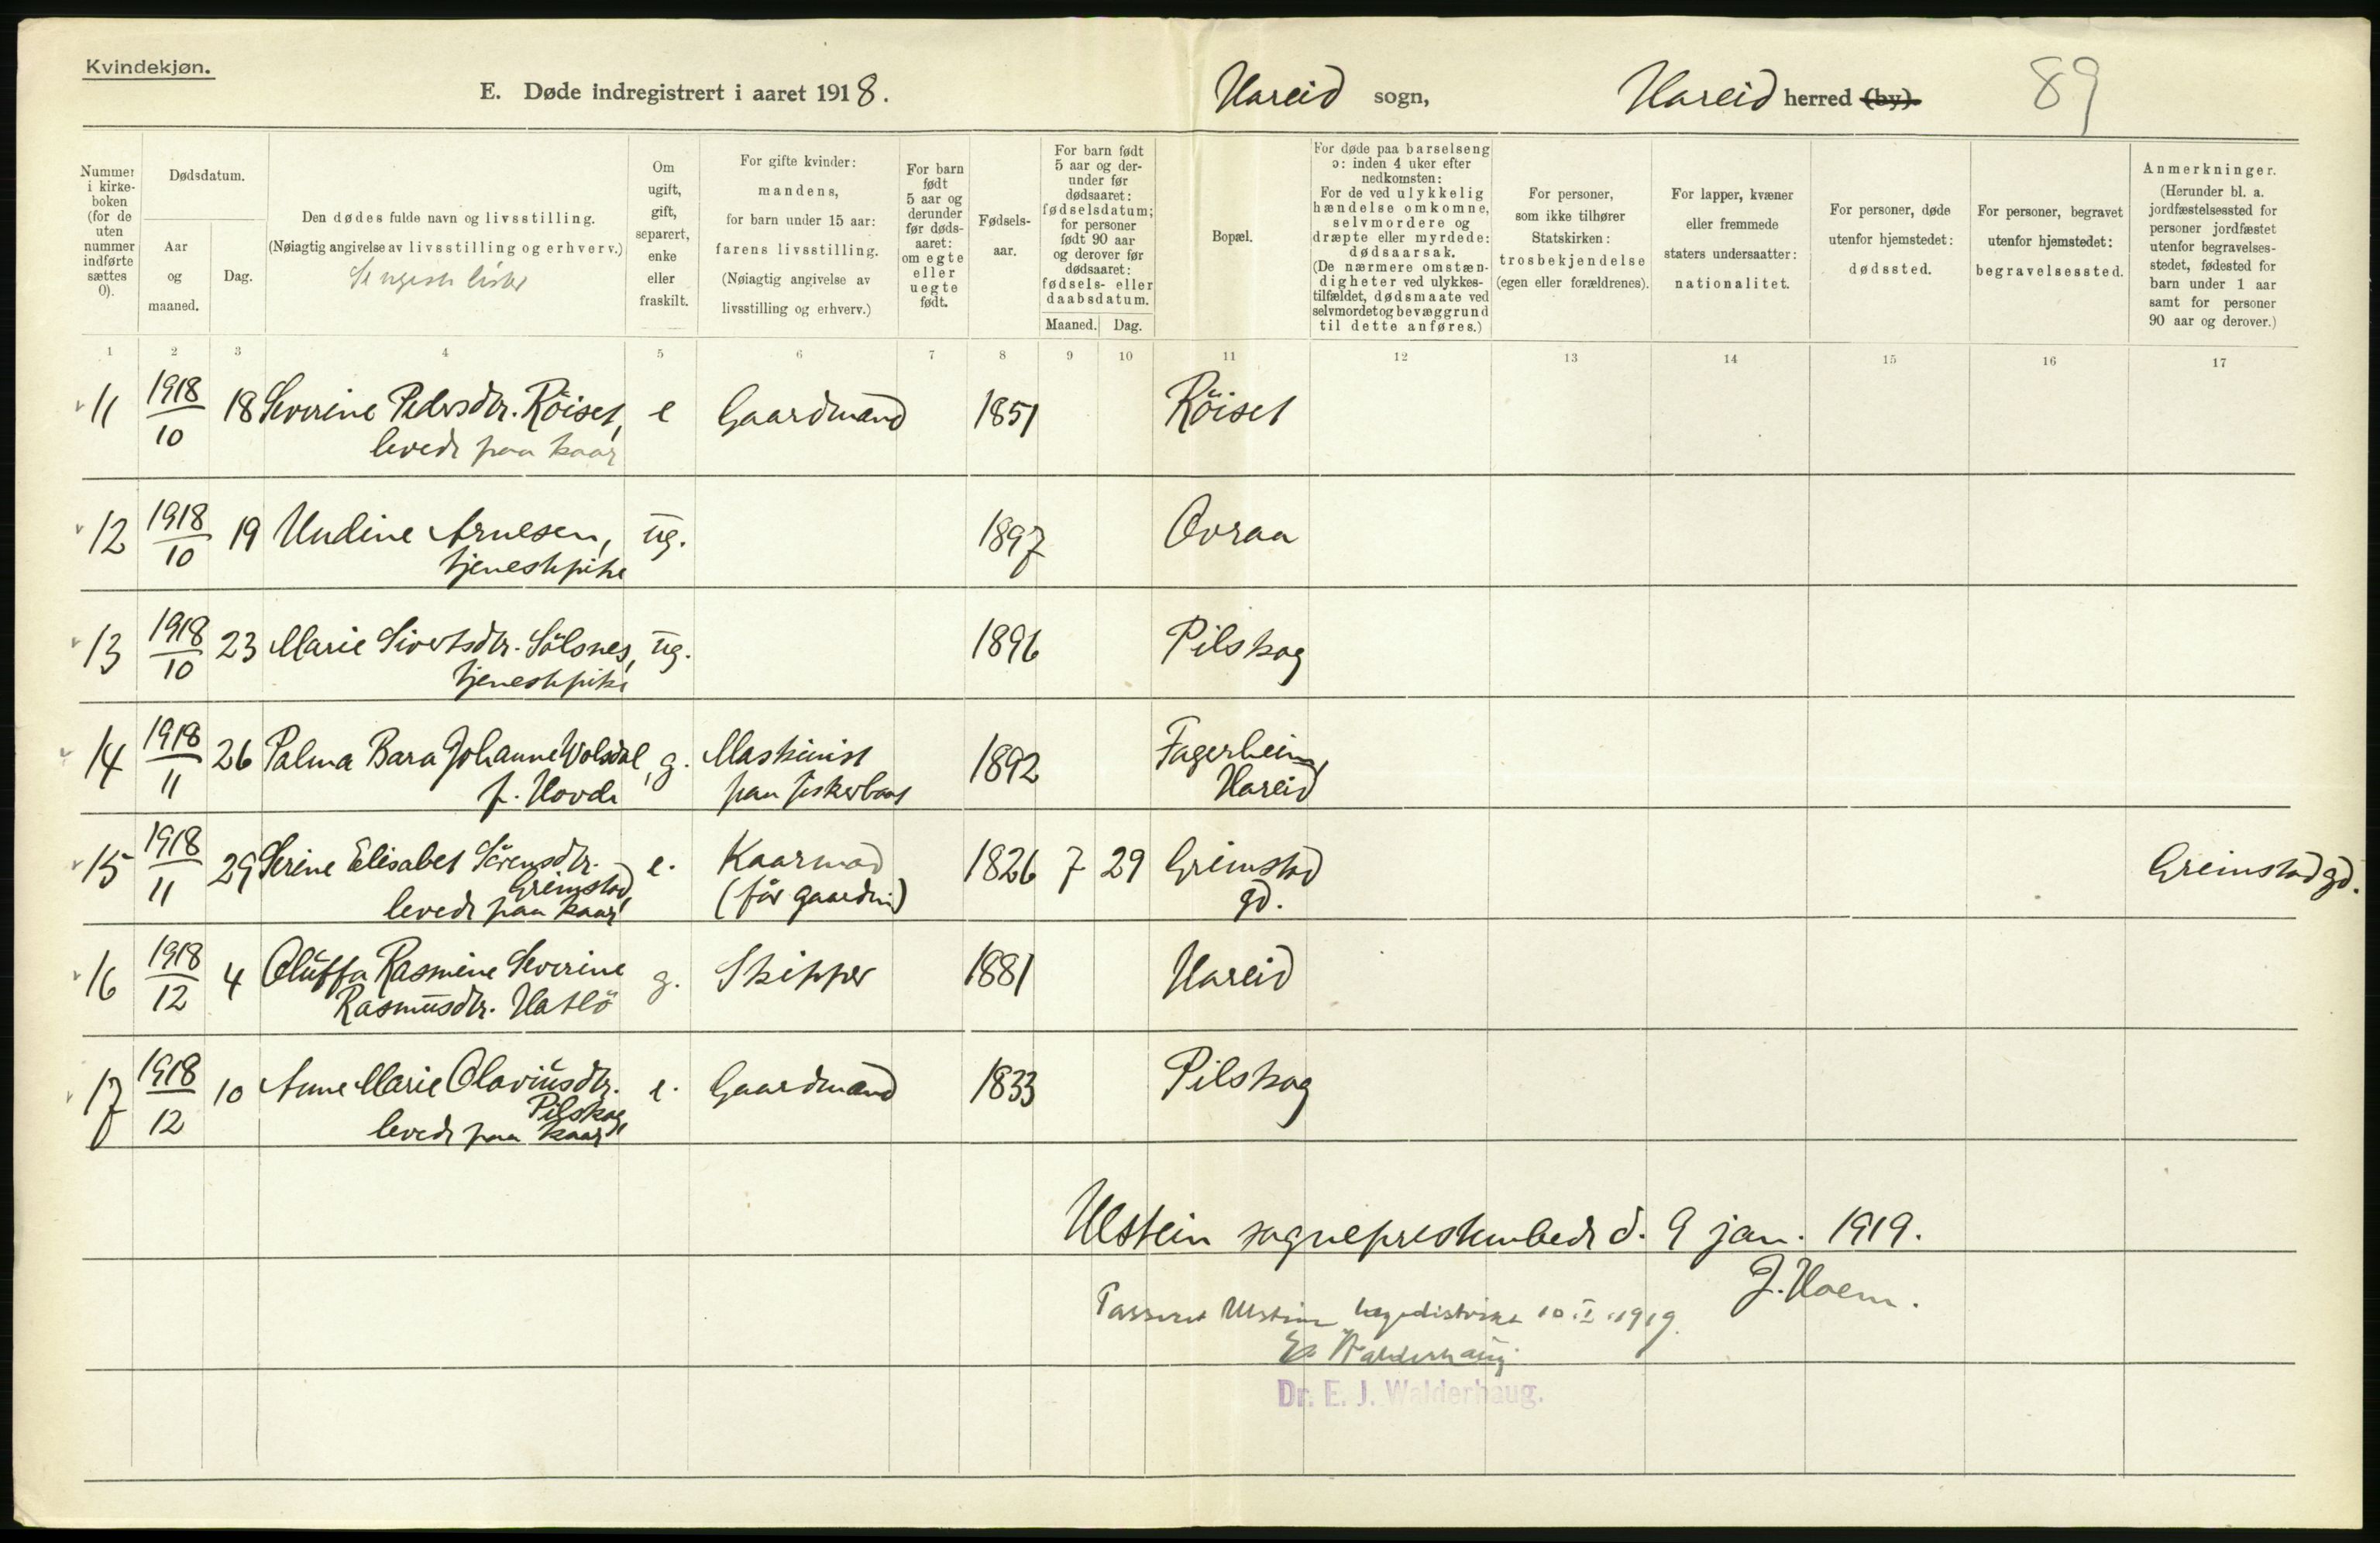 Kvindekjøn.
E. Døde indregistrert i aaret 1918.
Hareid sogn,
Hareid herred (by).
89
Nummer i kirke-boken (for de uten nummer indførte sættes 0).
Dødsdatum.
Aar og maaned.
Dag.
Den dødes fulde navn og livsstilling.
(Nøiagtig angivelse av livsstilling og erhverv.)
Om ugift, gift, separert, enke eller fraskilt.
For gifte kvinder: mandens, for barn under 15 aar: farens livsstilling. (Nøiagtig angivelse av livsstilling og erhverv.)
For barn født 5 aar og derunder før døds-aaret: om egte eller uegte født.
Fødsels-aar.
For barn født 5 aar og der-under før dødsaaret: fødselsdatum; for personer født 90 aar og derover før dødsaaret: fødsels- eller daabsdatum.
Maaned. Dag.
Bopæl.
For døde paa barselseng ɔ: inden 4 uker efter nedkomsten: For de ved ulykkelig hændelse omkomne, selvmordere og dræpte eller myrdede: dødsaarsak. (De nærmere omstæn-digheter ved ulykkes-tilfældet, dødsmaate ved selvmordet og bevæggrund til dette anføres.)
For personer, som ikke tilhører Statskirken: trosbekjendelse (egen eller forældrenes).
For lapper, kvæner eller fremmede staters undersaatter: nationalitet.
For personer, døde utenfor hjemstedet: dødssted.
For personer, begravet utenfor hjemstedet: begravelsessted.
Anmerkninger. (Herunder bl. a. jordfæstelsessted for personer jordfæstet utenfor begravelses-stedet, fødested for barn under 1 aar samt for personer 90 aar og derover.)
1 2 3 4 5 6 7 8 9 10 11 12 13 14 15 16 17
11 1918/10 18 Severine Pedersdtr. Röiset, e Gaardmand 1851 Röiset
levede paa kaar
12 1918/10 19 Undine Arnesen, ug. 1897 Ovraa
tjenestepike
13 1918/10 23 Marie Sivertsdtr. Sölsnes, ug. 1896 Pilskog
tjenestepike
14 1918/11 26 Palma Bara Johanne Volsdal, g. Maskinist 1892 Fagerheim,
f. Hovde paa fiskerbaat Hareid
15 1918/11 29 Serine Elisabet Sörensdtr. e. Kaarmand 1826 7 29 Grimstad Greimstad gd.
Greimstad,
levede paa kaar (för gaardm) gd.
16 1918/12 4 Oluffa Rasmine Severine g. Skipper 1881 Hareid
Rasmusdtr. Hatlö
17 1918/12 10 Anne Marie Olaviusdtr. e. Gaardmand 1833 Pilskog
Pilskog,
levede paa kaar
Ulstein sogneprestembede d. 9 jan. 1919.
J. Hoem.
Passeret Ulstein lægedistrikt 10.I.1919.
E. Walderhaug
Dr. E. J. Walderhaug.